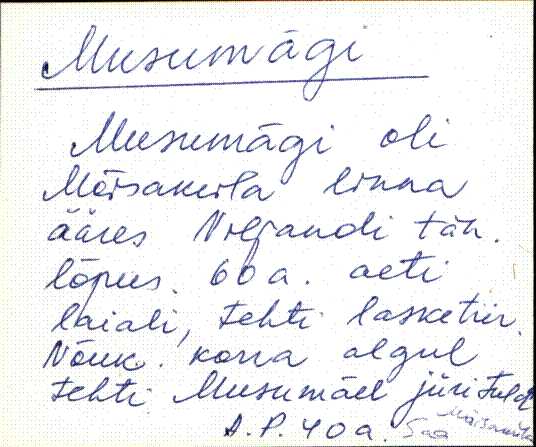 Musumägi
Musumägi oli
Mõisaküla linna
ääres Viljandi tän.
lõpus. 60 a. aeti
laiali, tehti lasketiir.
Nõuk. korra algul
tehti Musumäel jüri tuld
A. P. 40 a.
Mõisaküla